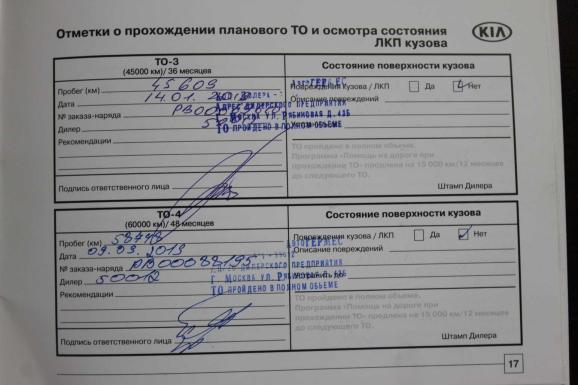 Отметки о прохождении планового ТО и осмотра состояния
ЛКП кузова
KIA
ТО-3
(45000 км)/ 36 месяцев
Пробег (км) 45609
Дата 14.01.
№ заказа-наряда
Дилер
Рекомендации
Подпись ответственного лица
АвтоГЕРМЕС
АДРЕС ДИЛЕРСКОГО ПРЕДПРИЯТИЯ
Г. МОСКВА УЛ. РЯБИНОВАЯ Д. 43Б
ТО ПРОЙДЕНО В ПОЛНОМ ОБЪЕМЕ
Состояние поверхности кузова
Повреждения Кузова / ЛКП Да Нет
Описание повреждений
ТО пройдено в полном объеме.
Программа «Помощь на дороге при
прохождении ТО» продлена на 15 000 км/12 месяцев
до следующего ТО.
Штамп Дилера
ТО-4
(60000 км)/ 48 месяцев
Пробег (км)
Дата 09.09.2013
№ заказа-наряда РВ00088195
Дилер
Рекомендации
Подпись ответственного лица
АвтоГЕРМЕС
ДИЛЕРСКОГО ПРЕДПРИЯТИЯ
Г. МОСКВА УЛ.
ТО ПРОЙДЕНО В ПОЛНОМ ОБЪЕМЕ
Состояние поверхности кузова
Повреждения Кузова / ЛКП Да Нет
Описание повреждений
Устранить до
ТО пройдено в полном объеме.
Программа «Помощь на дороге при
прохождении ТО» продлена на 15 000 км/12 месяцев
до следующего ТО.
Штамп Дилера
17